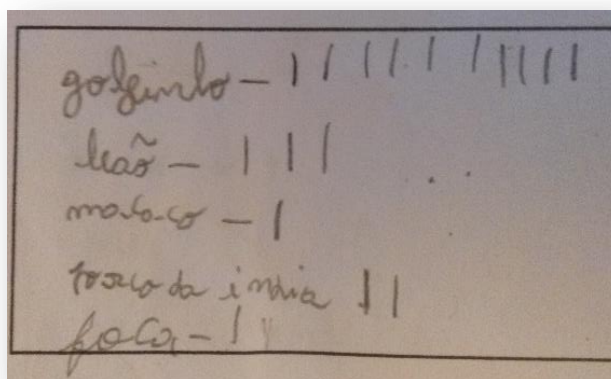 golfinho - | | | | | | | | | |
leão - | | |
macaco - |
porco da india | |
foca - |